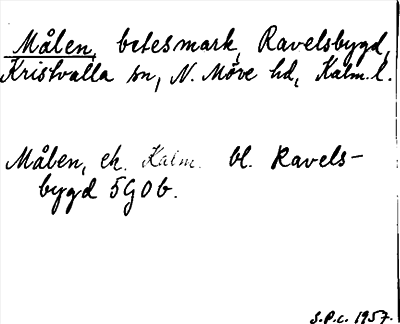 Målen, betesmark, Ravelsbygd,
Kristvalla sn, N. Möre hd, Kalm. l.
Målen, ek. Kalm. bl. Ravels-
bygd 5G0b.
S.P.C. 1957.